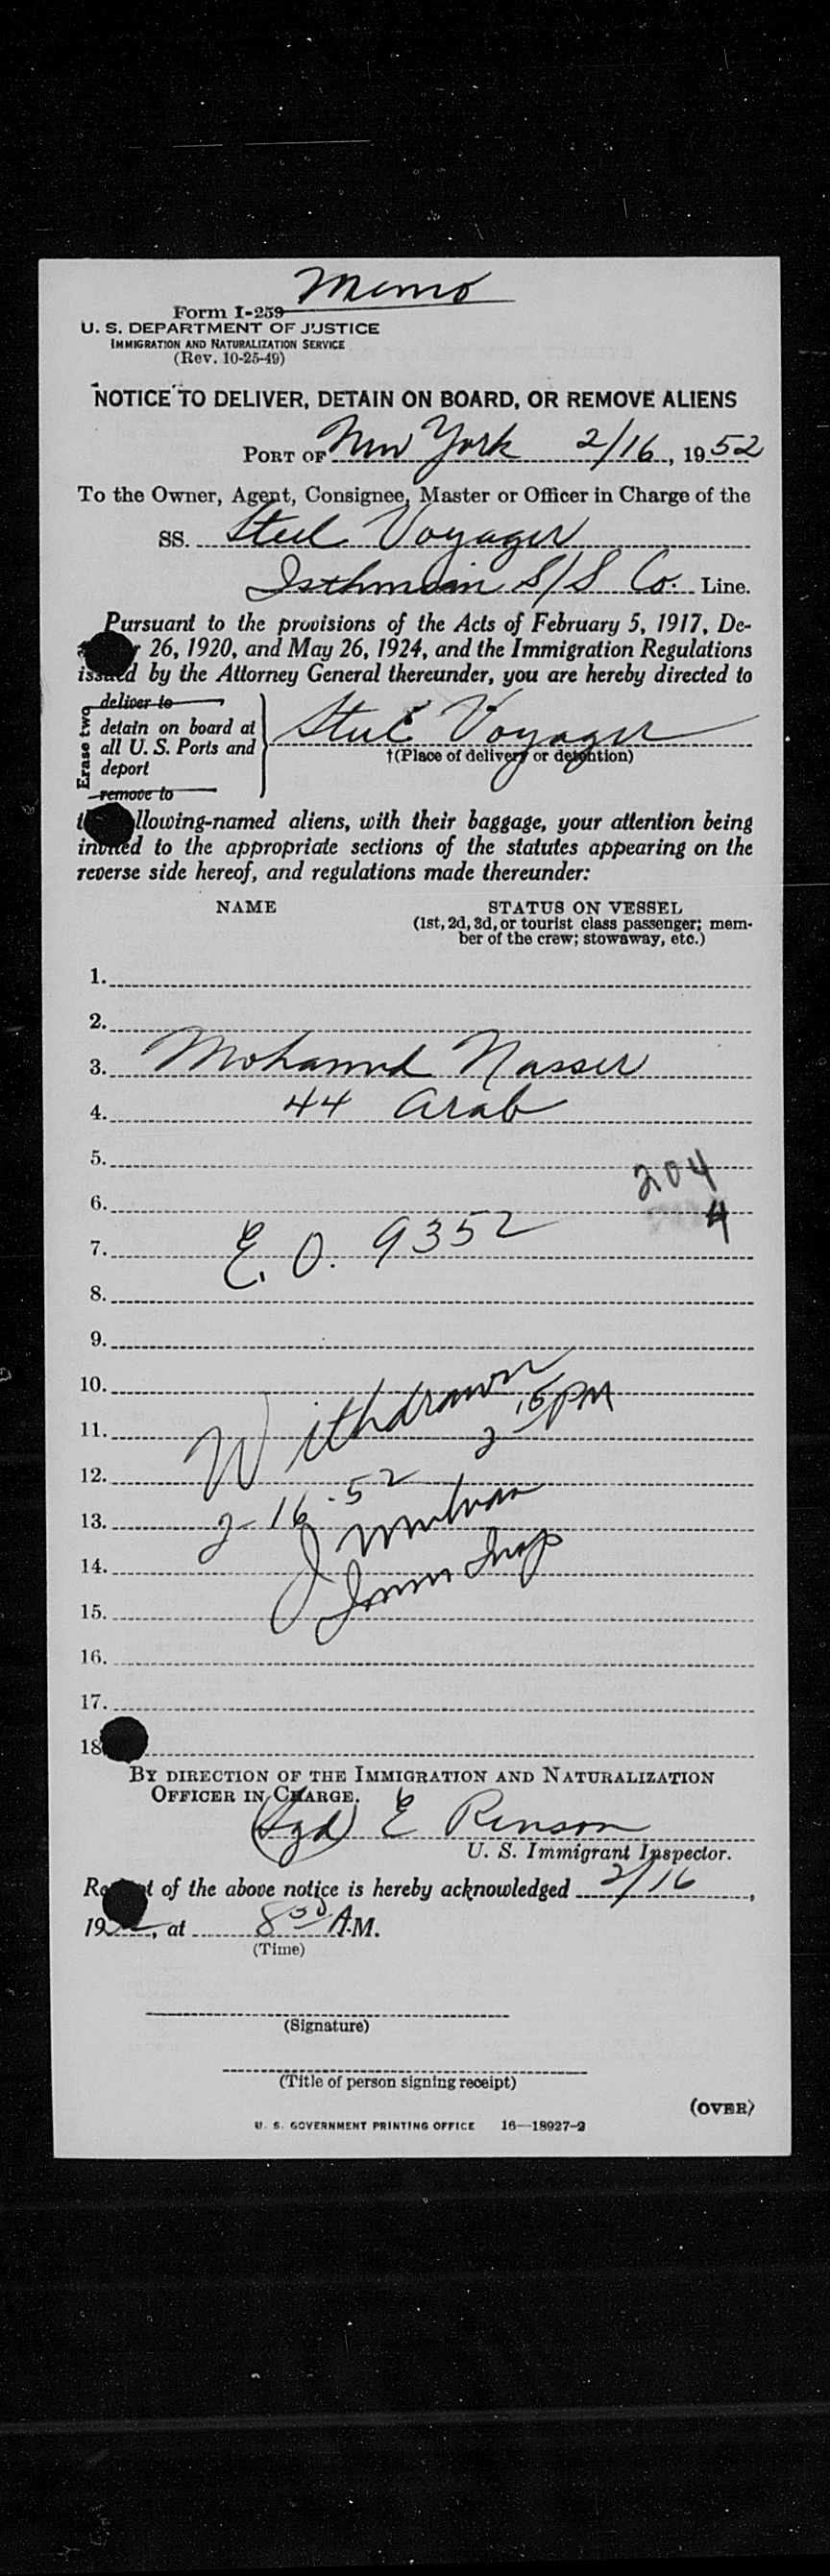 Memo
Form I-259
U. S. DEPARTMENT OF JUSTICE
IMMIGRATION AND NATURALIZATION SERVICE
(Rev. 10-25-49)
NOTICE TO DELIVER, DETAIN ON BOARD, OR REMOVE ALIENS
PORT OF New York 2/16, 1952
To the Owner, Agent, Consignee, Master or Officer in Charge of the
SS. Steel Voyager
Isthmian S/S Co. Line.
Pursuant to the provisions of the Acts of February 5, 1917, De-
26, 1920, and May 26, 1924, and the Immigration Regulations
issued by the Attorney General thereunder, you are hereby directed to
Erase two
deliver to
detain on board at
all U. S. Ports and
deport
remove to
Steel Voyager
†(Place of delivery or detention)
the following-named aliens, with their baggage, your attention being
invited to the appropriate sections of the statutes appearing on the
reverse side hereof, and regulations made thereunder:
NAME STATUS ON VESSEL
(1st, 2d, 3d, or tourist class passenger; mem-
ber of the crew; stowaway, etc.)
1.
2.
3. Mohamed Nasser
4. 44 Arab
5.
204
6.
4
7. E. O. 9352
8.
9.
10.
11. Withdrawn 2 15 PM
12.
13. 2-16-52
14. Imm Insp
15.
16.
17.
18
BY DIRECTION OF THE IMMIGRATION AND NATURALIZATION
OFFICER IN CHARGE.
(Sgd) E Renson
U. S. Immigrant Inspector.
Receipt of the above notice is hereby acknowledged 2/16,
19, at 8 30 A.M.
(Time)
(Signature)
(Title of person signing receipt)
(OVER)
U. S. GOVERNMENT PRINTING OFFICE 16—18927-2